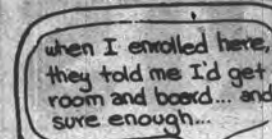 when I enrolled here,
they told me I'd get
room and board... and
sure enough...